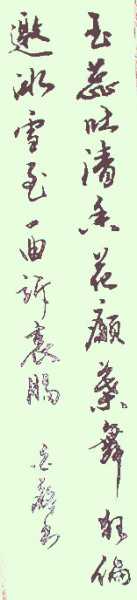 玉蕊吐清香花顽叶舞狂偏
邀冰雪至一曲诉衷肠